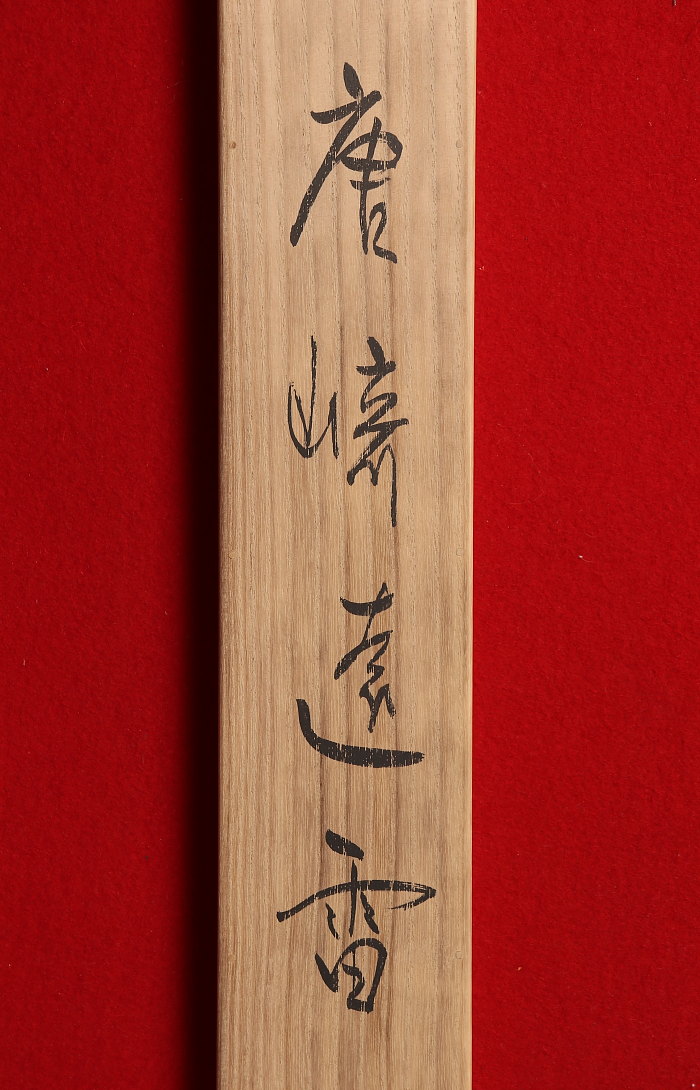 唐崎遠雷